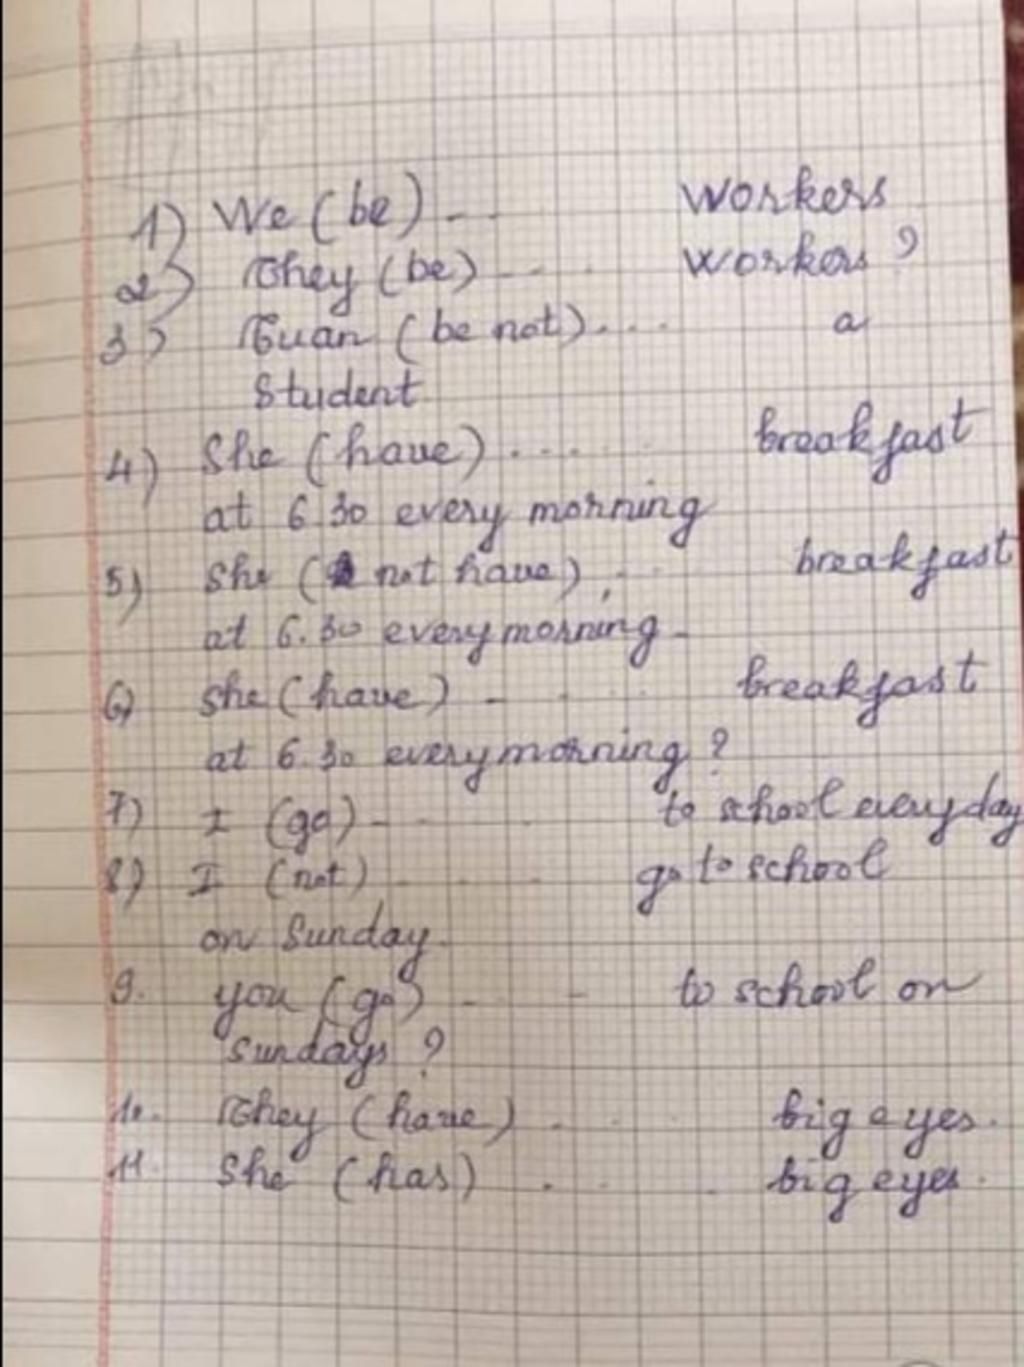 1) We (be) ... workers
2) They (be) ... workers ?
3) Tuan (be not) .... a
student
4) She (have) .... breakfast
at 6 30 every morning
5) She (not have) . breakfast
at 6.30 every morning
6) she (have) - breakfast
at 6.30 every morning ?
7) I (go) - - to school everyday
8) I (not) go to school
on Sunday.
9. you (go) - - to school on
Sundays ?
10. They (have) . big eyes.
11. She (has) . big eyes.